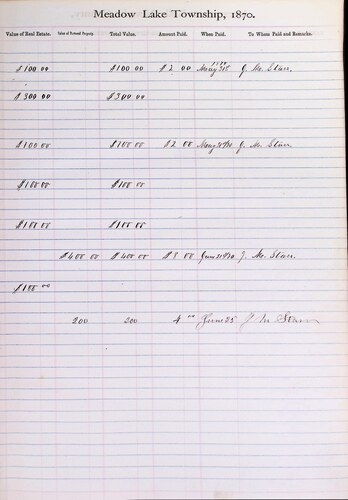 Meadow Lake Township, 1870.
Value of Real Estate. Value of Personal Property. Total Value. Amount Paid. When Paid. To Whom Paid and Remarks.
$100.00 $100 00 $2 00 May J. M. Starr.
$300.00 $300 00
$100 00 $100 00 $2 00 May J. M. Starr.
$100 00 $100 00
$100 00 $100 00
$400 00 $400 00 $8 00 June J. M. Starr.
$100 00
200 200 4 00 June 25 J M Starr